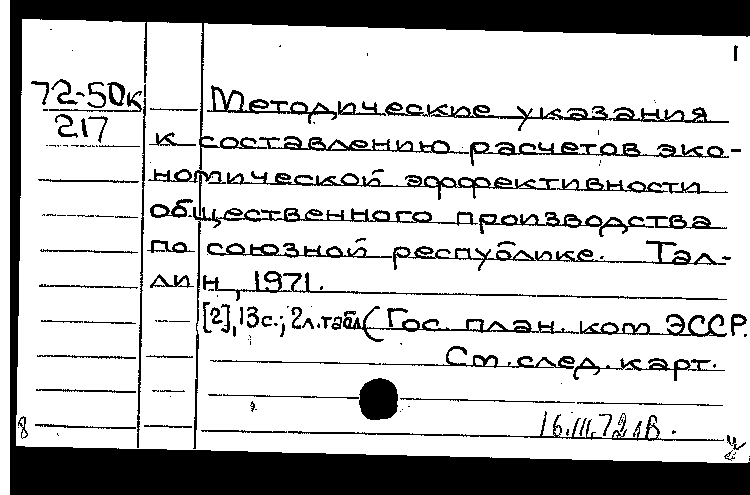 1
72-50к
217
Методические указания
к составлению расчетов эко-
номической эффективности
общественного производства
по союзной республике. Тал-
лин, 1971.
[2], 13с.; 2л.табл (Гос. план. ком ЭССР.
См. след. карт.
16.III.72
8